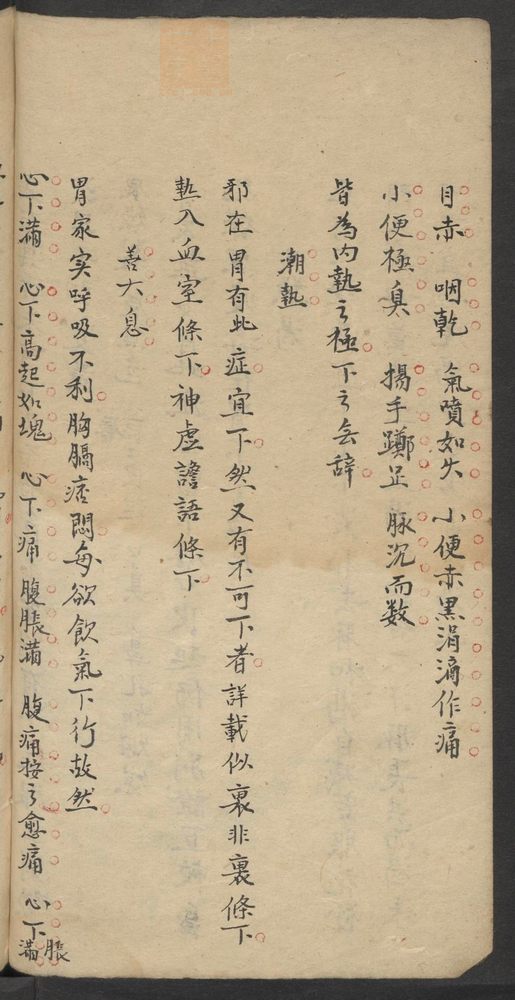 目赤 咽乾 氣噴如火 小便赤黑涓滴作痛
小便極臭 揚手擲足 脉沉而数
皆為内熱之極下之無辞
潮熱
邪在胃有此症宜下然又有不可下者詳載似裏非裏條下
熱入血室條下神虚譫語條下
善大息
胃家实呼吸不利胸膈痞悶每欲飲氣下行故然
心下滿 心下高起如塊 心下痛 腹脹滿 腹痛按之愈痛 心下脹滿